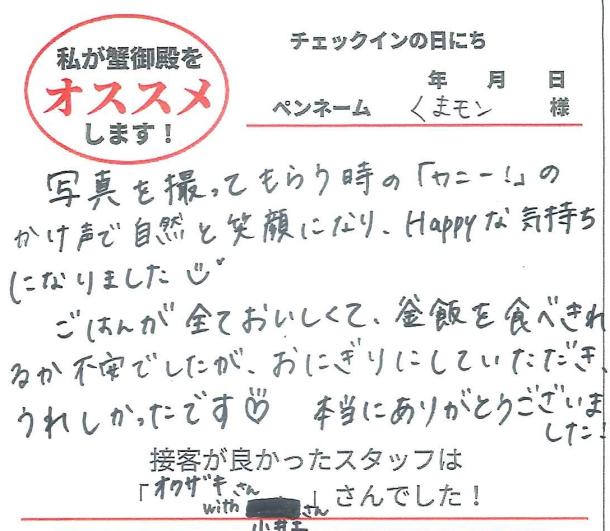 私が蟹御殿を
オススメ
します！
チェックインの日にち
年 月 日
ペンネーム くまモン 様
写真を撮ってもらう時の「カニー！」の
かけ声で自然と笑顔になり、Happyな気持ち
になりました
ごはんが全ておいしくて、釜飯を食べきれ
るか不安でしたが、おにぎりにしていただき、
うれしかったです♡ 本当にありがとうございま
した！
接客が良かったスタッフは
「オクザキさん
with さん」さんでした！